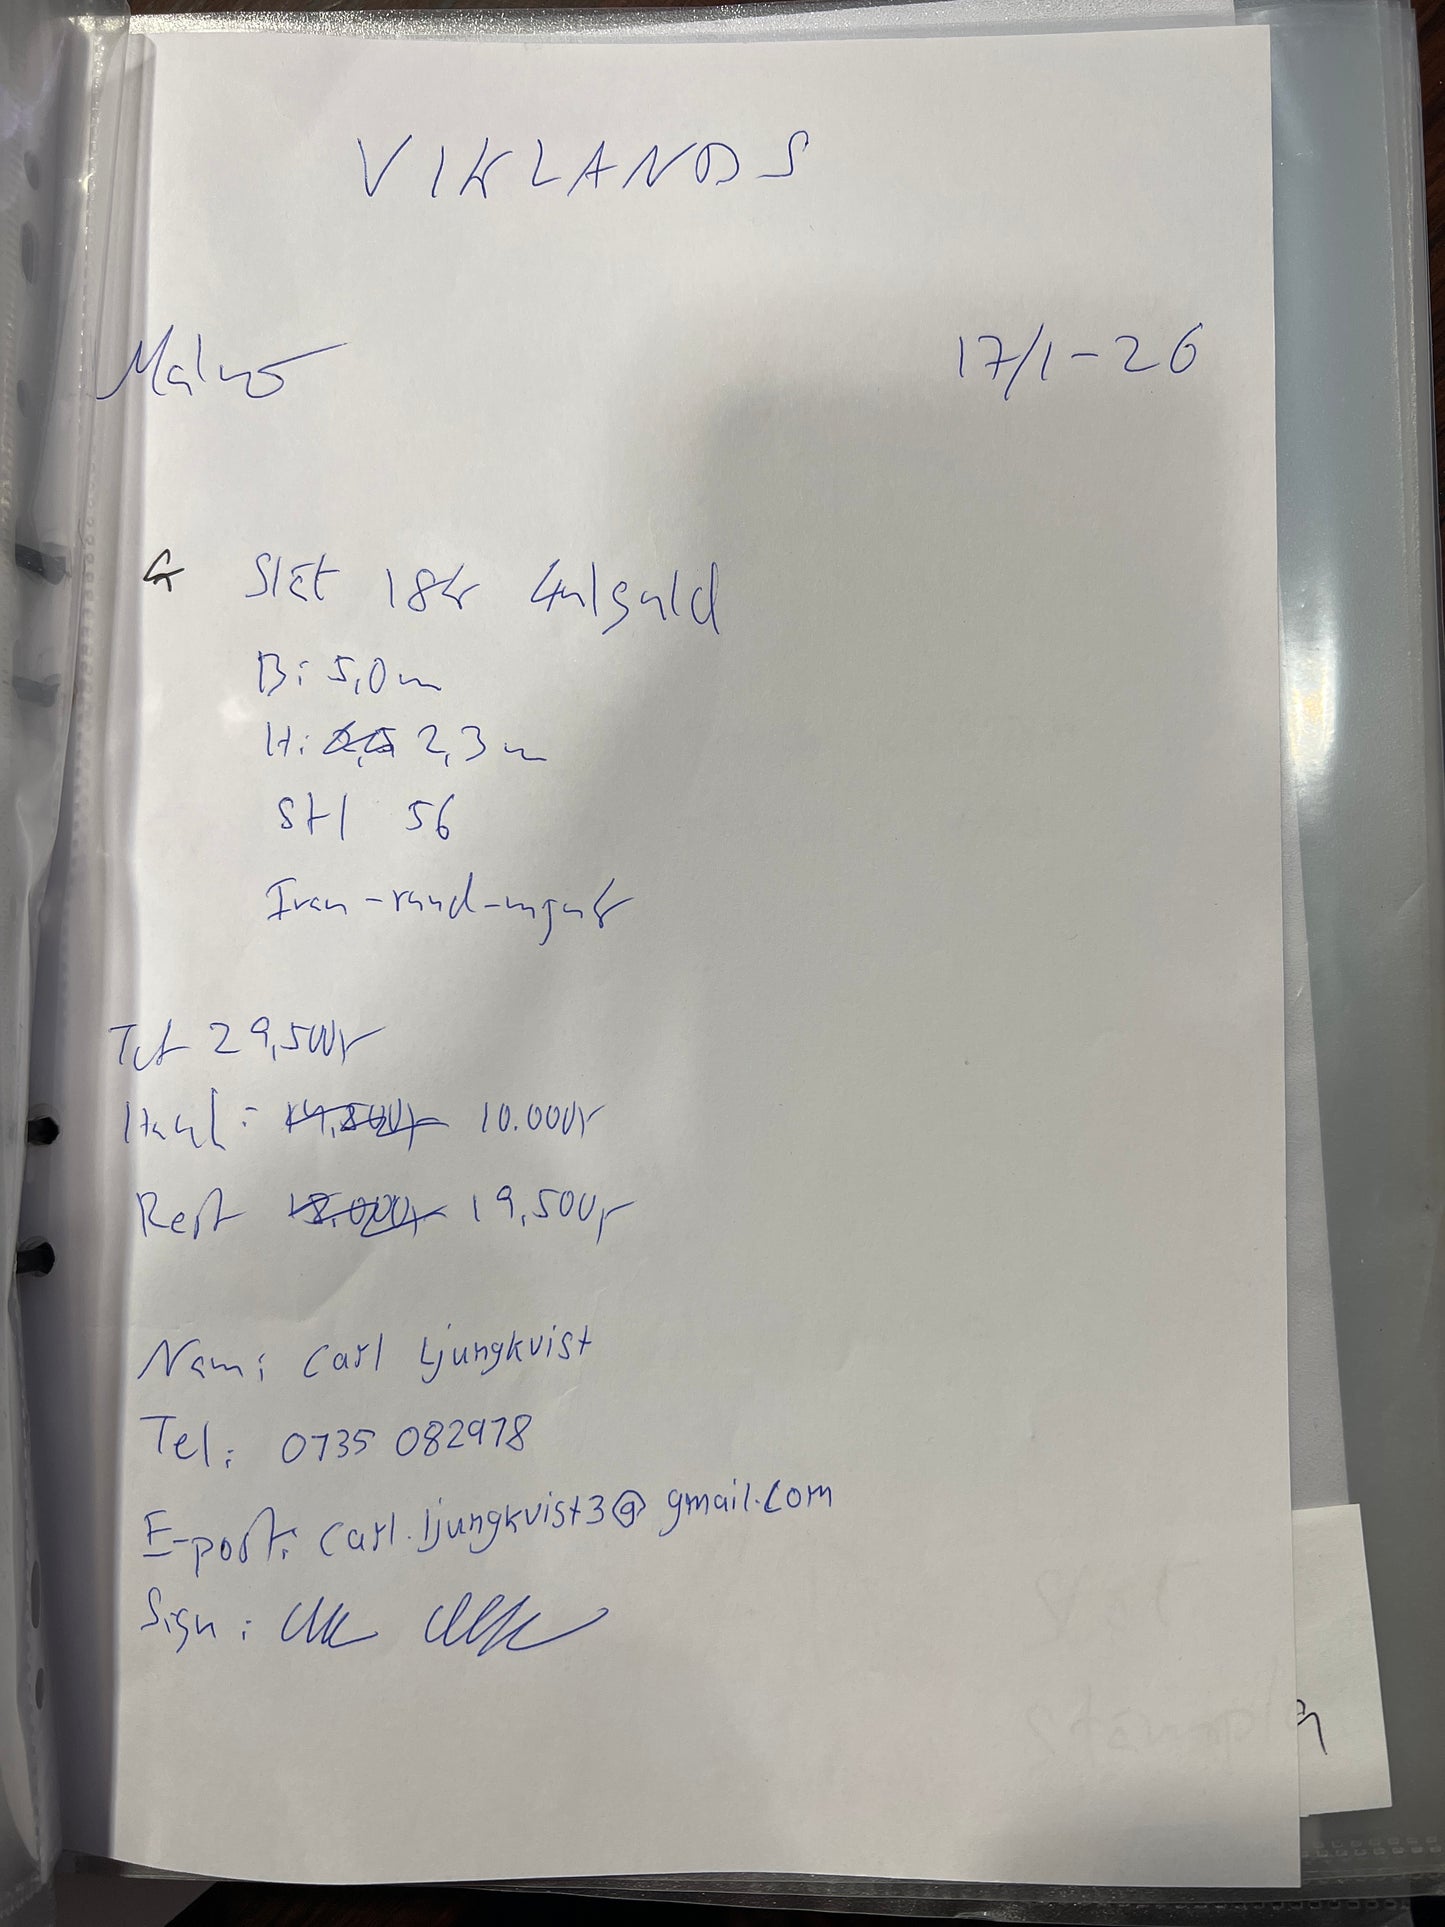 VIKLANDS
Malmö 17/1-26
Slät 18k Gulguld
B: 5,0m
H: 2,3m
Stl 56
Tot 29,500kr
10.000kr
Rest 19,500kr
Namn: Carl Ljungkvist
Tel: 0735 082978
E-post: carl.ljungkvist3@gmail.com
Sign: